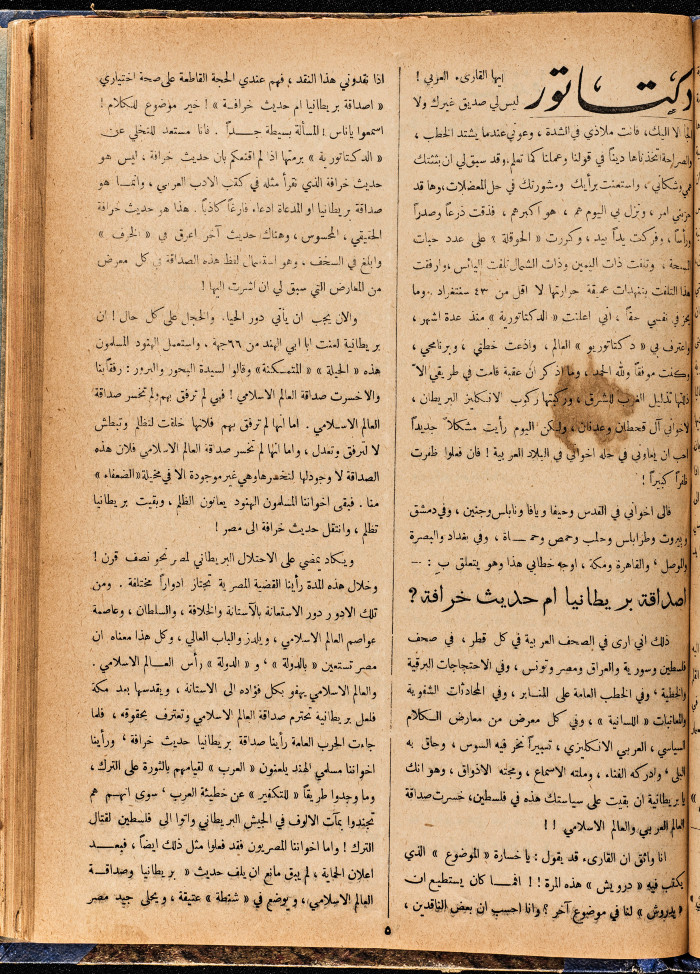 دكتاتور
ايها القارىء العربي !
ليس لي صديق غيرك ولا
الا اليك، فانت ملاذي في الشدة ، وعوني عندما يشتد الخطب ،
والصراحة اتخذناها ديناً في قولنا وعملنا كما تعلم، وقد سبق لي ان بثثتك
همي وشكاتي ، واستعنت برأيك ومشورتك في حل المعضلات، وها قد
حزبني امر ، ونزل بي اليوم هم ، هو اكبر هم ، فضقت ذرعاً وصدراً
ورأساً ، وفركت يداً بيد ، وكررت « الحوقلة » على عدد حبات
السبحة ، وتلفت ذات اليمين وذات الشمال تلفت اليائس ، وارفقت
هذا التلفت بتنهدات عميقة حرارتها لا اقل من ٤٣ سنتغراد . وما
يحز في نفسي حقاً ، اني اعلنت « الدكتاتورية » منذ عدة اشهر ،
واعترف بي « دكتاتوريو » العالم ، واذعت خطتي ، وبرنامجي ،
وكنت موفقاً ولله الحمد ، وما اذكر ان عقبة قامت في طريقي الا
ذللتها تذليل الغرب للشرق ، وركبتها ركوب الانكليز البريطان ،
لاخواني آل قحطان وعدنان ، ولكن اليوم رأيت مشكلاً جديداً
احب ان يعاونني في حله اخواني في البلاد العربية ! فان فعلوا ظفرت
ظفراً كبيراً !
فالى اخواني في القدس وحيفا ويافا ونابلس وجنين ، وفي دمشق
وبيروت وطرابلس وحلب وحمص وحمـــاة ، وفي بغداد والبصرة
والموصل ، والقاهرة ومكة ، اوجه خطابي هذا وهو يتعلق بـ : —
اصداقة بريطانيا ام حديث خرافة ؟
ذلك اني ارى في الصحف العربية في كل قطر ، في صحف
فلسطين وسورية والعراق ومصر وتونس ، وفي الاحتجاجات البرقية
والخطية ، وفي الخطب العامة على المنـابر ، وفي المحادثات الشفوية
والمعاتبات « اللسانية » ، وفي كل معرض من معارض الكلام
السياسي ، العربي الانكليزي ، تعبيراً نخر فيه السوس ، وحاق به
البلى ، وادركه الفناء ، وملته الاسماع ، ومجته الاذواق ، وهو انك
يا بريطانية ان بقيت على سياستك هذه في فلسطين، خسرت صداقة
العالم العربي والعالم الاسلامي ! !
انا واثق ان القارىء قد يقول : يا خسارة « الموضوع » الذي
يكتب فيه « درويش » هذه المرة ! ! افما كان يستطيع ان
« يدروش » لنا في موضوع آخر ؟ وانا احسب ان بعض الناقدين ،
اذا نقدوني هذا النقد ، فهم عندي الحجة القاطعة على صحة اختياري
« اصداقة بريطانيا ام حديث خرافة » ! خير موضوع للكلام !
اسمعوا ياناس ! المسألة بسيطة جـــداً . فانا مستعد للتخلي عن
« الدكتاتورية » برمتها اذا لم اقنعكم بان حديث خرافة ، ليس هو
حديث خرافة الذي نقرأ مثله في كتب الادب العربي ، وانمـا هو
صداقة بريطانيا او المدعاة ادعاء فارغاً كاذباً . هذا هو حديث خرافة
الحقيقي ، المحسوس ، وهناك حديث آخر اعرق في « الخرف »
وابلغ في السخف ، وهو استعمال لفظ هذه الصداقة في كل معرض
من المعارض التي سبق لي ان اشرت اليها !
والان يجب ان يأتي دور الحياء . والخجل على كل حال ! ان
بريطانية لعنت ابا ابي الهند من ٦٦ جهة ، واستعمل الهنود المسلمون
هذه « الحيلة » « المتمسكنة » وقالوا لسيدة البحور والبرور : رفقاً بنا
والا خسرت صداقة العالم الاسلامي ! فهي لم ترفق بهم ولم تخسر صداقة
العالم الاسلامي . اما انها لم ترفق بهم فلانها خلقت لتظلم وتبطش
لا لترفق وتعدل ، واما انها لم تخسر صداقة العالم الاسلامي فلان هذه
الصداقة لا وجود لها لتخسرها وهي غير موجودة الا في مخيلة « الضعفاء »
منا . فبقي اخواننا المسلمون الهنود يعانون الظلم ، وبقيت بريطانيا
تظلم ، وانتقل حديث خرافة الى مصر !
ويكاد يمضي على الاحتلال البريطاني لمصر نحو نصف قرن !
وخلال هذه المدة رأينا القضية المصرية تجتاز ادواراً مختلفة . ومن
تلك الادوار دور الاستعانة بالآستانة والخلافة ، والسلطان ، وعاصمة
عواصم العالم الاسلامي ، ويلدز والباب العالي ، وكل هذا معناه ان
مصر تستعين « بالدولة » ، و « الدولة » رأس العــالم الاسلامي .
والعالم الاسلامي يهفو بكل فؤاده الى الاستانة ، ويقدسها بعد مكة
فلعل بريطانية تحترم صداقة العالم الاسلامي وتعترف بحقوقه ، فلما
جاءت الحرب العامة رأينا صداقة بريطانيا حديث خرافة ، ورأينا
اخواننا مسلمي الهند يلعنون « العرب » لقيامهم بالثورة على الترك ،
وما وجدوا طريقاً « للتكفير » عن خطيئة العرب ، سوى انهــم هم
تجندوا بمآت الالوف في الجيش البريطاني واتوا الى فلسطين لقتال
الترك ! واما اخواننا المصريون فقد فعلوا مثل ذلك ايضاً ، فبعـــد
اعلان الحماية ، لم يبق مانع ان يلف حديث « بريطانيا وصداقــة
العالم الاسلامي »، ويوضع في « شنطة » عتيقة ، ويحلى جيد مصر
٥